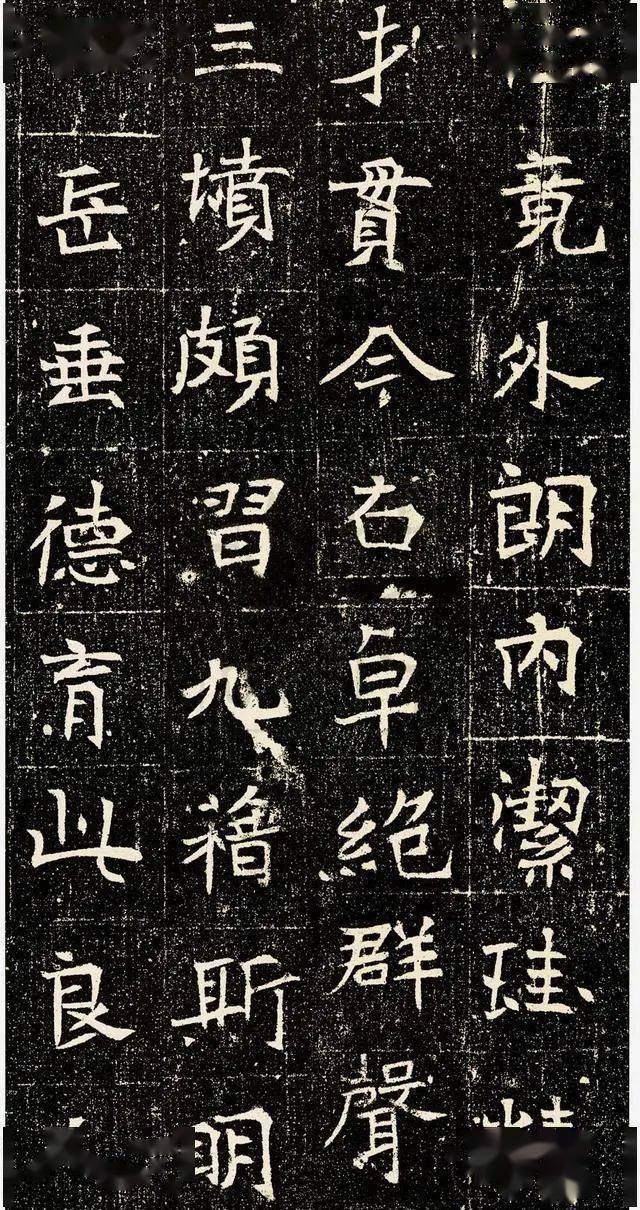 竟外朗內潔珪
才貫今右卓絕群聲
三墳頗習九藉斯明
岳垂德育此良